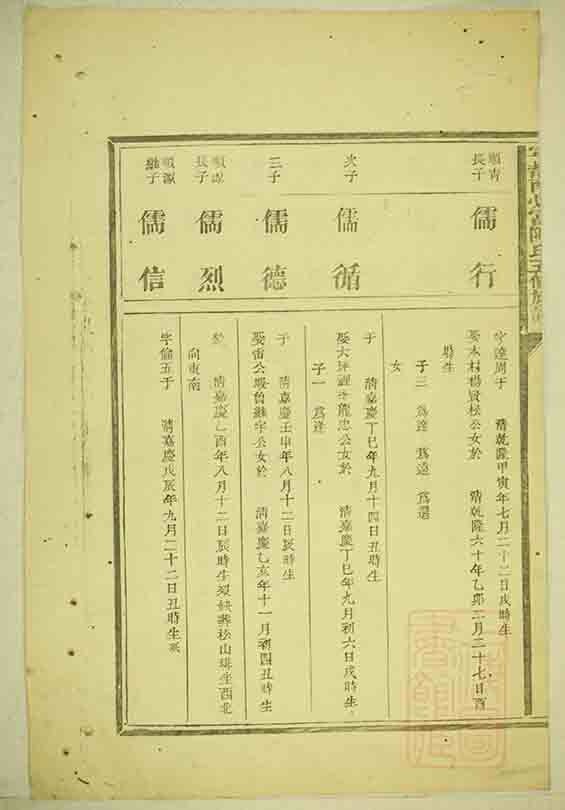 順青
長子
儒行
字達周于 清乾隆甲寅年七月二十二日戌時生
娶木村楊賢松公女於 清乾隆六十年乙卯三月二十七日酉
時生
子三 為達 為遠 為選
女
次子
儒循
于 清嘉慶丁巳年九月十四日丑時生
娶大坪 龍忠公女於 清嘉慶丁巳年九月初六日戌時生
子一 為達
三子
儒德
于 清嘉慶壬申年八月十二日辰時生
娶雷公 曾繼宇公女於 清嘉慶乙亥年十一月初四丑時生
順源
長子
儒烈
於 清嘉慶乙酉年八月十二日辰時生 葬松山 生西北
向東南
順源
繼子
儒信
字倫五于 清嘉慶戊辰年九月二十二日丑時生